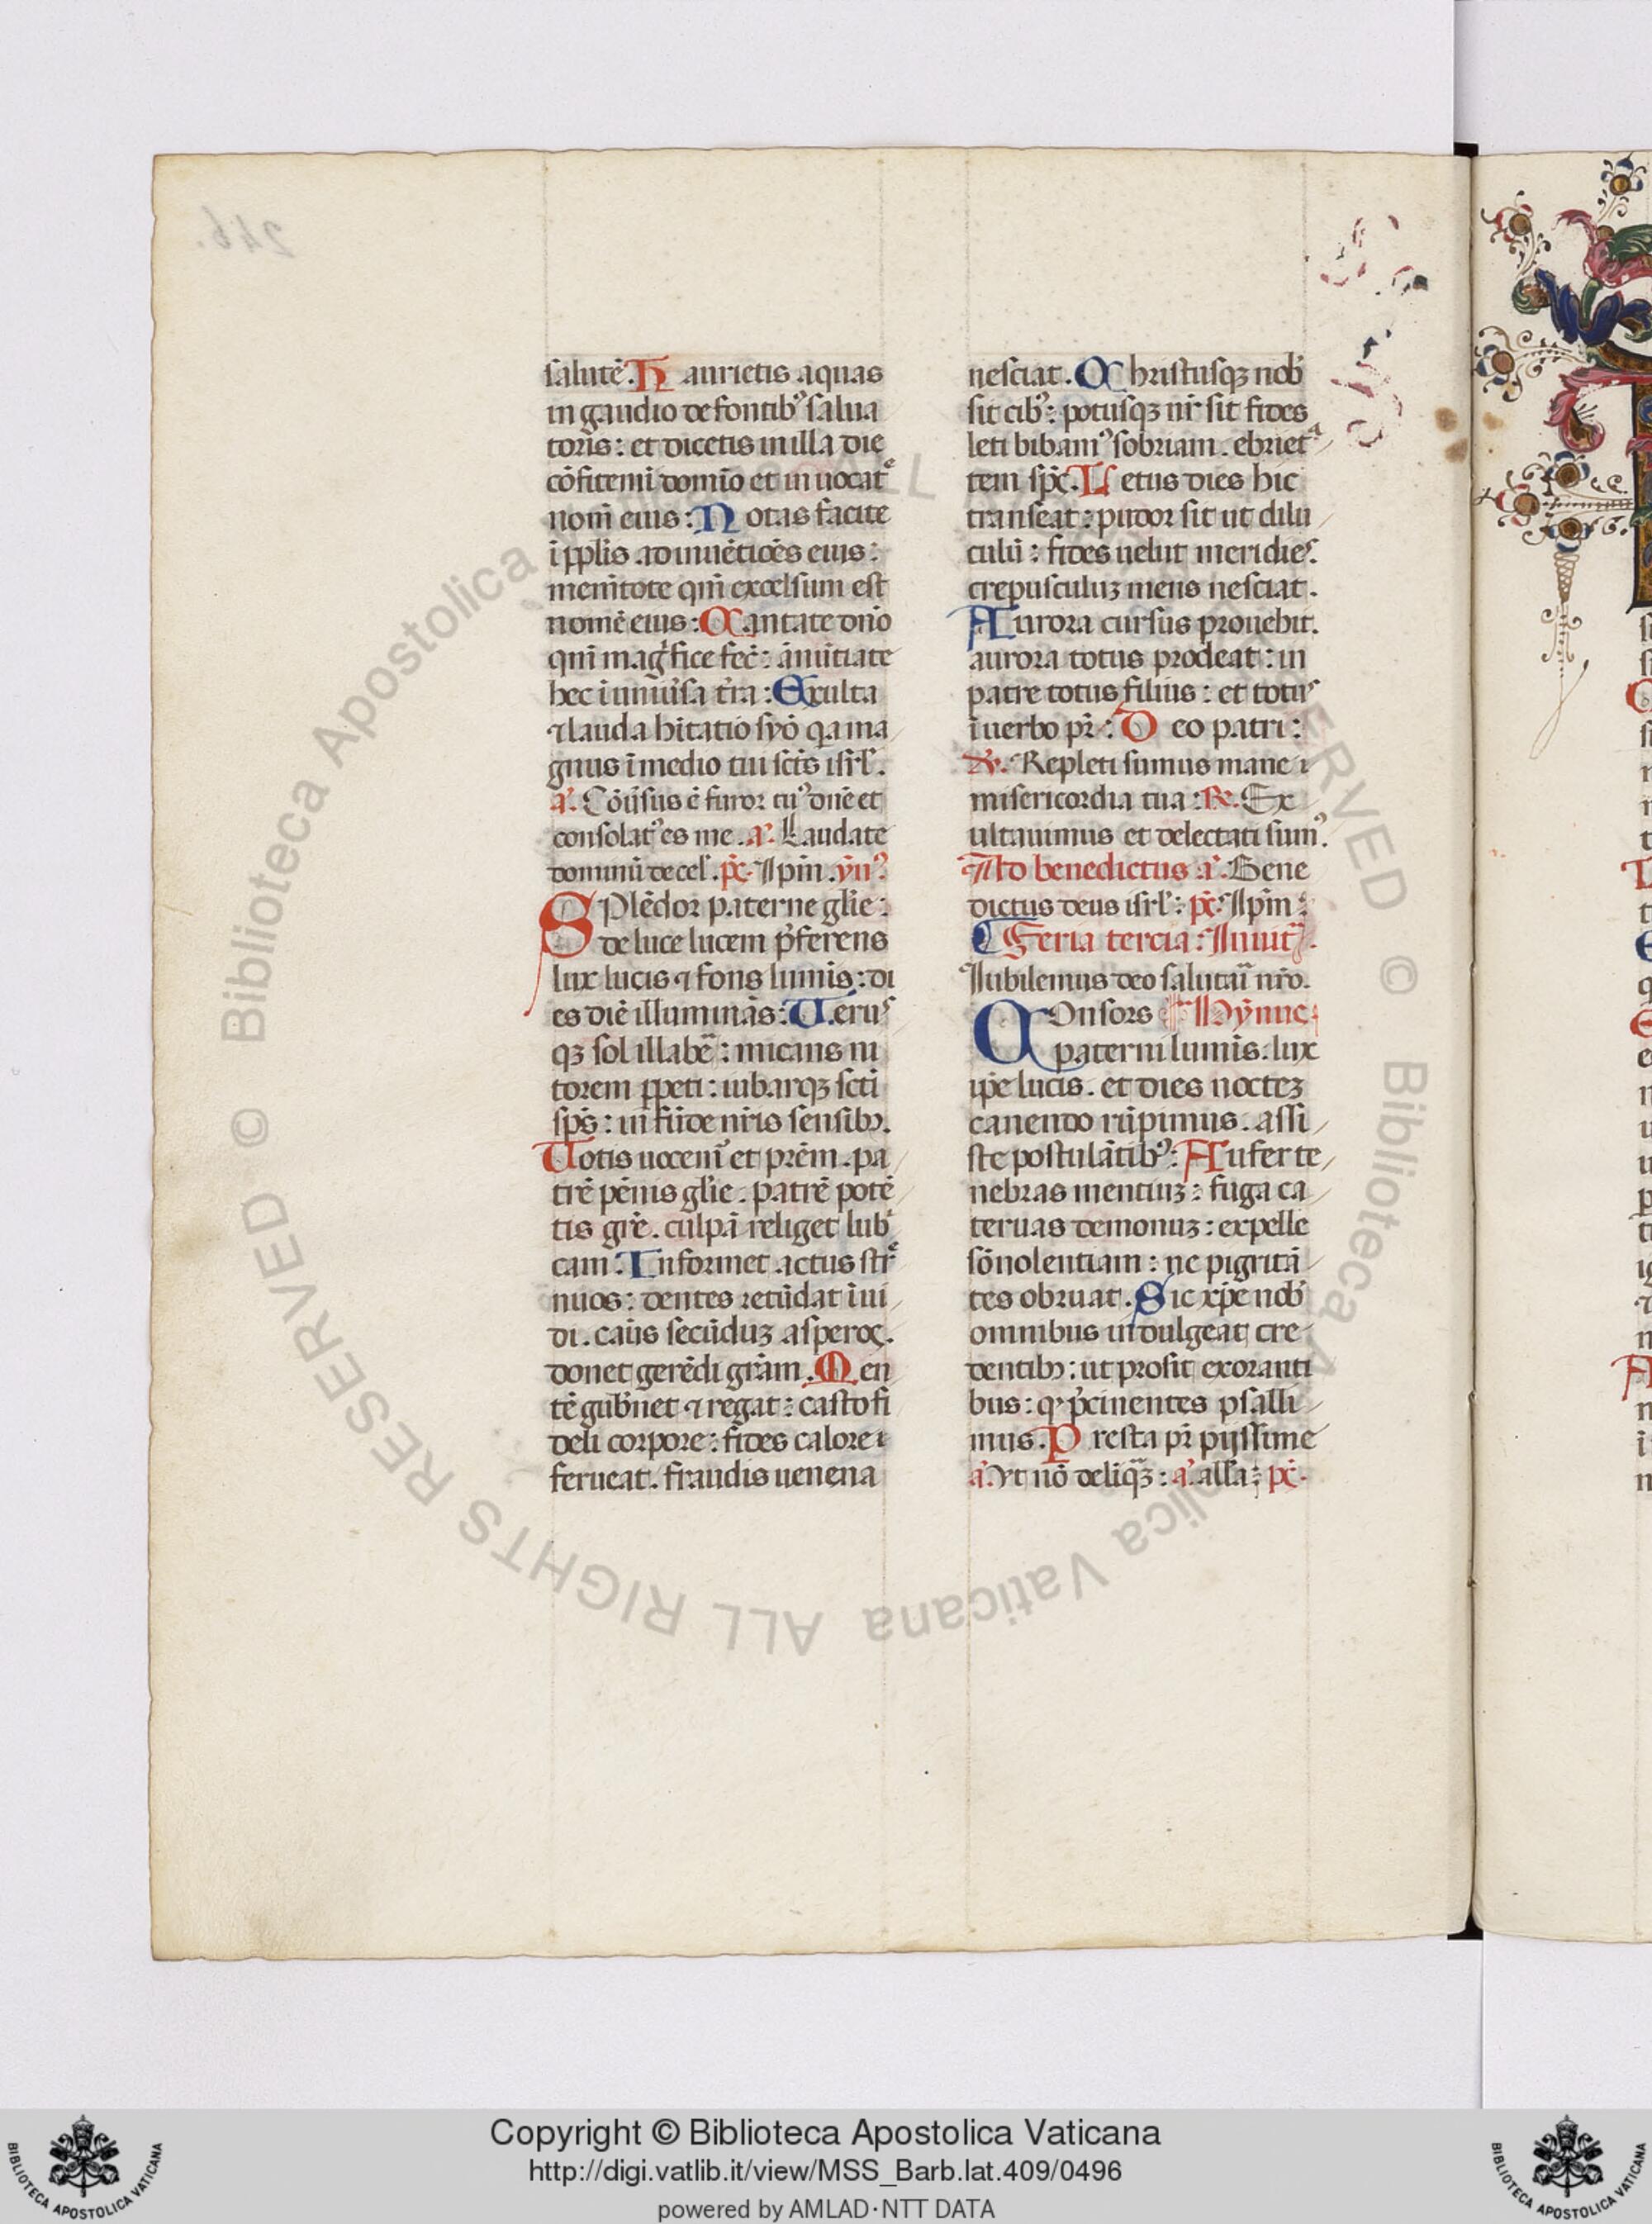 salutē. Haurietis aquas
in gaudio de fontibꝰ salua
toris: et dicetis in illa die
cōfitemī domīo et inuocatͤ
nom̄ eius: Notas facite
ī pplīs adinuētiōes eius:
menītote qm̄ excelsum est
nomē eius: Cantate dnō
qm̄ magͥfice fec̄: ānūtiate
hec ī uniūsa tr̄a: Exulta
⁊ lauda hītatio syō q̄a ma
gnus ī medio tui sctū isrl̄.
a͛. Cōūsus ē furor tuꝰ dnē et
consolatꝰ es me. a͛. Laudate
dominū de cel̄. p̄c. Ipm̄. ym̄ꝰ.
SPlēdor paterne glīe:
de luce lucem p̄ferens
lux lucis ⁊ fons lumīs: di
es diē illuminās: Verus
qꝫ sol illabē͛: micans ni
torem ꝑpeti: iubarqꝫ scti
spūs: infūde nr̄is sensibꝫ.
Uotis uocemꝰ et prēm. pa
trē pēnis glīe. patrē potē
tis grē. culpā religet lubͥ
cam. Informet actus strͤ
nuos: dentes retūdat īui
di. cāus secūduꝫ asperoꝝ.
donet gerēdi grām. Men
tē gub̄net ⁊ regat: casto fi
deli corpore: fides calore
ferueat. fraudis uenena
nesciat. Christusqꝫ nob̄
sit cibꝰ: potusqꝫ nr̄ sit fides
leti bibamꝰ sobriam. ebrietᵃ
tem spc̄. Letus dies hic
transeat: pudor sit ut dilu
culū: fides uelut meridies.
crepusculuꝫ mens nesciat.
Aurora cursus prouehit.
aurora totus prodeat: in
patre totus filius: et totus
ī uerbo pr̄: Deo patri:
V͛. Repleti sumus mane
misericordia tua: R͛. Ex
ultauimus et delectati sumꝰ.
Ad benedictus a͛. Bene
dictus deus isrl̄: p̄c. Ipm̄:
Feria tercia: Inuit̄.
Iubilemus deo salutaī nr̄o.
COnsors Hymnꝰ
paterni lumīs. lux
ipe lucis. et dies nocteꝫ
canendo rūpimus. assi
ste postulātibꝰ: Aufer te
nebras mentiuꝫ: fuga ca
teruas demonuꝫ: expelle
sōnolentiam: ne pigritā
tes obruat. Sic xp̄e nob̄
omnibus indulgeat cre
dentibꝫ: ut prosit exoranti
bus: qͥ p̄cinentes psalli
mus. Presta pr̄ pijssime
a͛. Vt nō deliq̄ꝫ: a͛. alla: p̄c.
Copyright © Biblioteca Apostolica Vaticana
http://digi.vatlib.it/view/MSS_Barb.lat.409/0496
powered by AMLAD·NTT DATA